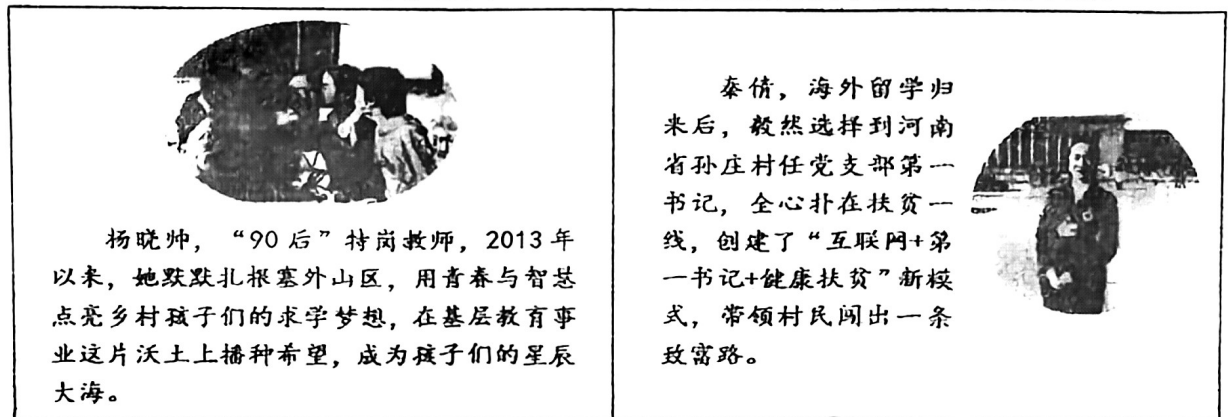 杨晓帅，“90后”特岗教师，2013年
以来，她默默扎根塞外山区，用青春与智慧
点亮乡村孩子们的求学梦想，在基层教育事
业这片沃土上播种希望，成为孩子们的星辰
大海。
秦倩，海外留学归
来后，毅然选择到河南
省孙庄村任党支部第一
书记，全心扑在扶贫一
线，创建了“互联网+第
一书记+健康扶贫”新模
式，带领村民闯出一条
致富路。